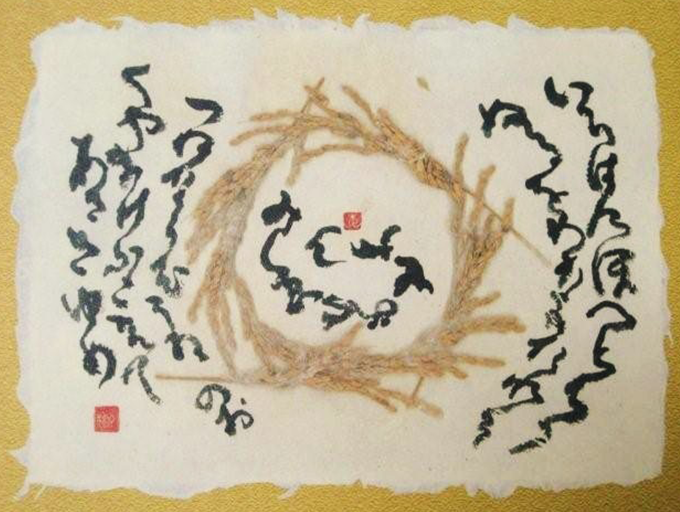 いろはにほへとちり
ぬるをわかよたれそ
つねならむうゐのお
くやまけふこえて
あさきゆめ
みしゑひもせすん